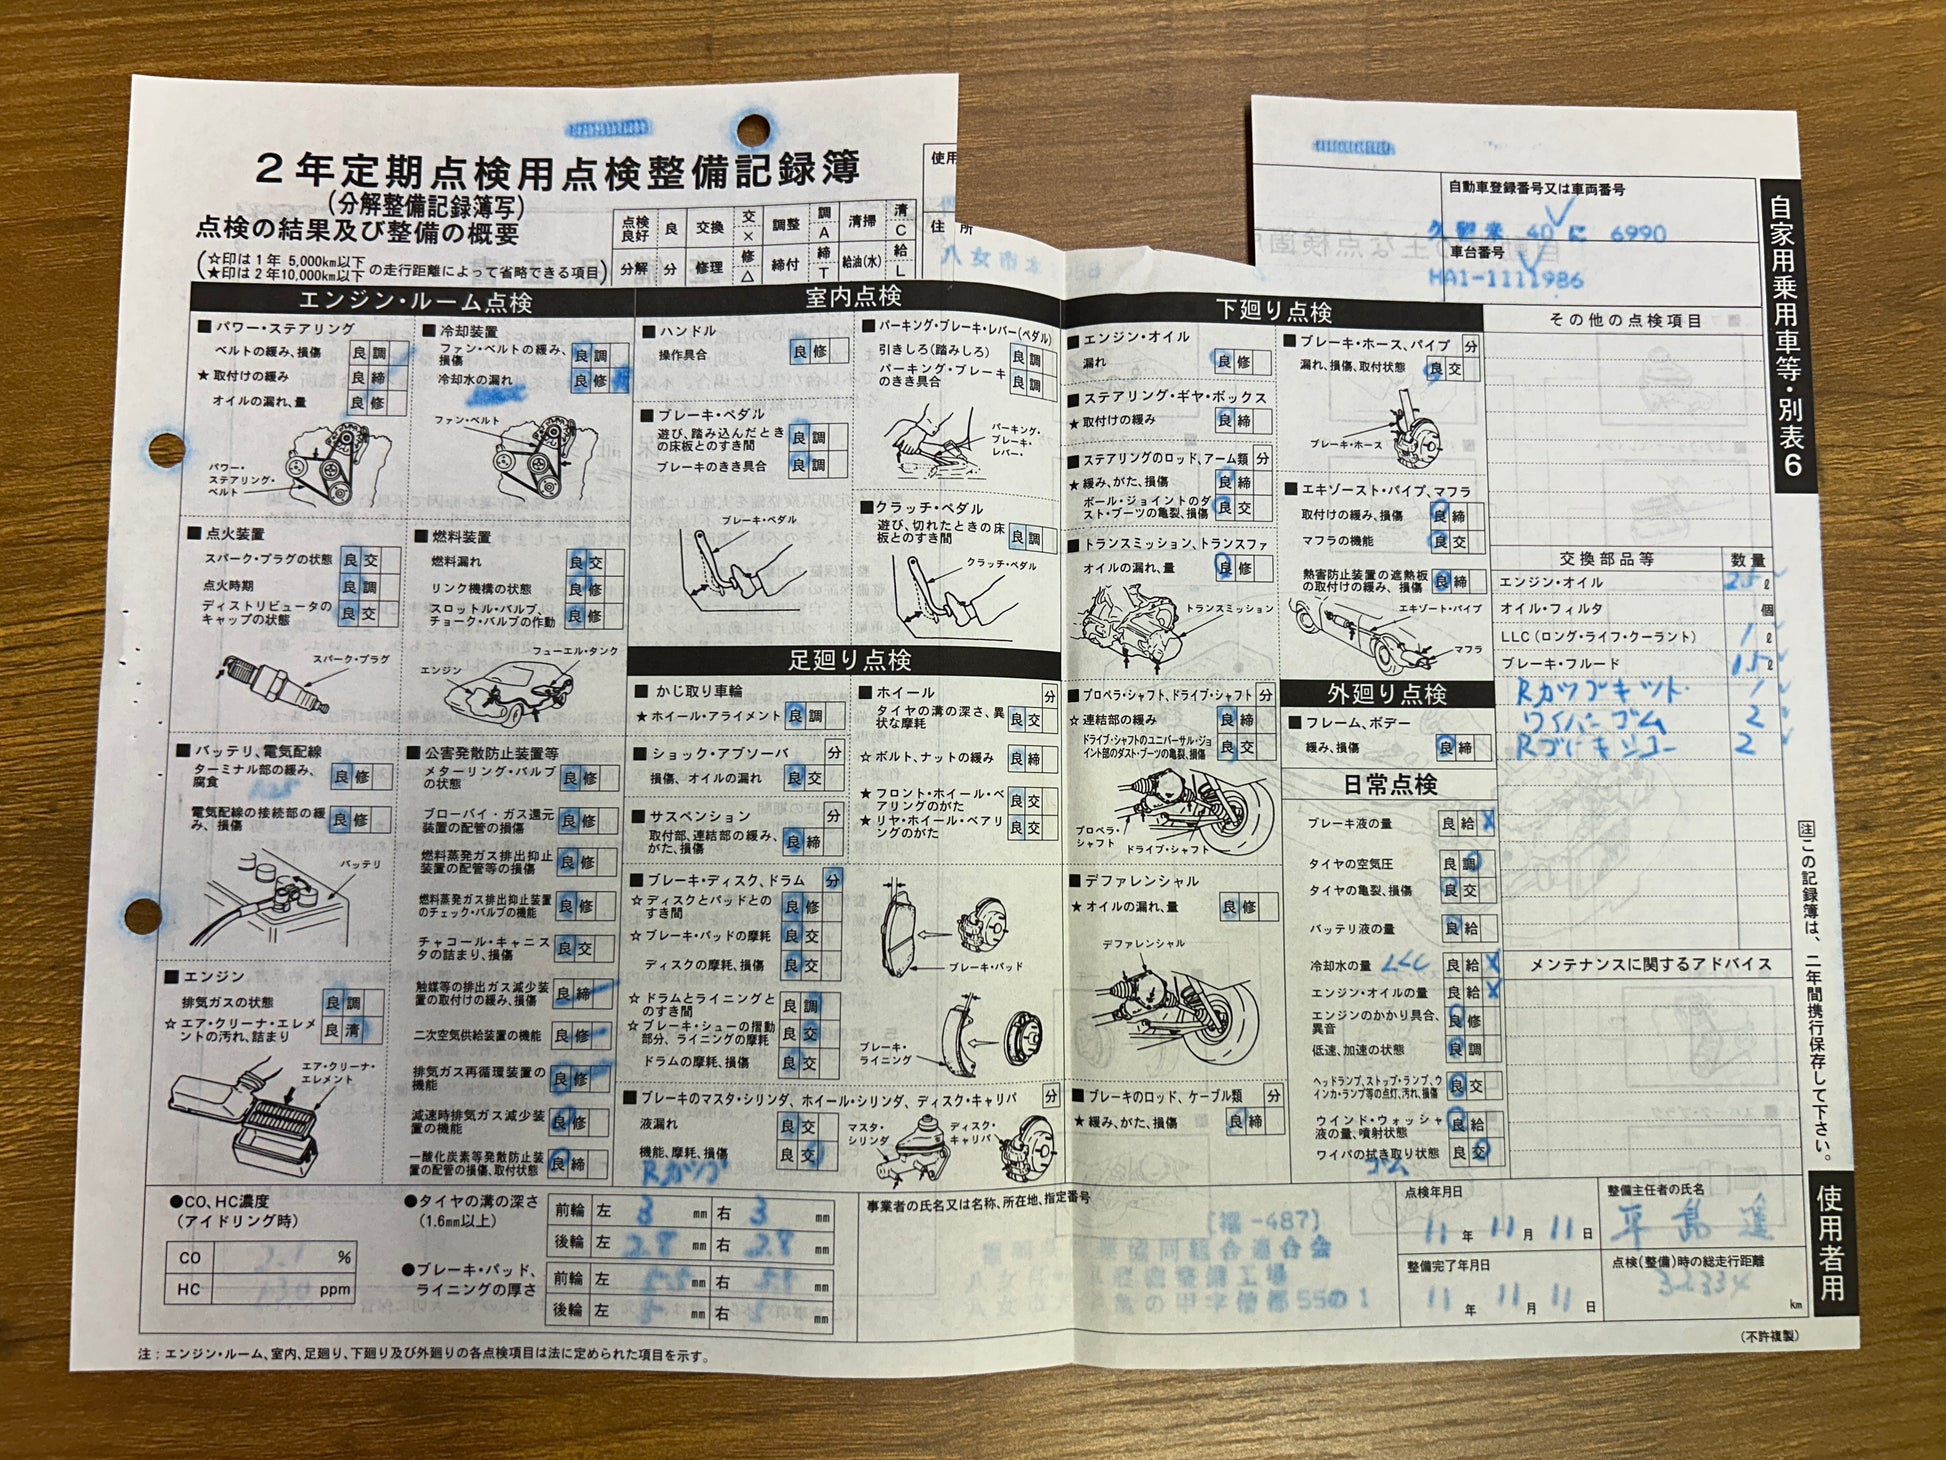 2年定期点検用点検整備記録簿
(分解整備記録簿写)
点検の結果及び整備の概要
(☆印は1年 5,000km以下
★印は2年10,000km以下 の走行距離によって省略できる項目)
点検良好 良 交換 交× 調整 調A 清掃 清C
分解 分 修理 修△ 締付 締T 給油(水) 給L
使用
住 所
八女市
自動車登録番号又は車両番号
久留米 40 に 6990
車台番号
HA1-1111986
自家用乗用車等・別表6
エンジン・ルーム点検
■パワー・ステアリング
ベルトの緩み、損傷 良 調
★取付けの緩み 良 締
オイルの漏れ、量 良 修
パワー・ステアリング・ベルト
■冷却装置
ファン・ベルトの緩み、損傷 良 調
冷却水の漏れ 良 修
ファン・ベルト
■点火装置
スパーク・プラグの状態 良 交
点火時期 良 調
ディストリビュータのキャップの状態 良 交
スパーク・プラグ
■燃料装置
燃料漏れ 良 交
リンク機構の状態 良 修
スロットル・バルブ、チョーク・バルブの作動 良 修
フューエル・タンク
エンジン
■バッテリ、電気配線
ターミナル部の緩み、腐食 良 修
電気配線の接続部の緩み、損傷 良 修
バッテリ
■公害発散防止装置等
メターリング・バルブの状態 良 修
ブローバイ・ガス還元装置の配管の損傷 良 修
燃料蒸発ガス排出抑止装置の配管等の損傷 良 修
燃料蒸発ガス排出抑止装置のチェック・バルブの機能 良 修
チャコール・キャニスタの詰まり、損傷 良 交
触媒等の排出ガス減少装置の取付けの緩み、損傷 良 締
二次空気供給装置の機能 良 修
排気ガス再循環装置の機能 良 修
減速時排気ガス減少装置の機能 良 修
一酸化炭素等発散防止装置の配管の損傷、取付状態 良 締
■エンジン
排気ガスの状態 良 調
☆エア・クリーナ・エレメントの汚れ、詰まり 良 清
エア・クリーナ・エレメント
室内点検
■ハンドル
操作具合 良 修
■ブレーキ・ペダル
遊び、踏み込んだときの床板とのすき間 良 調
ブレーキのきき具合 良 調
ブレーキ・ペダル
■パーキング・ブレーキ・レバー(ペダル)
引きしろ(踏みしろ) 良 調
パーキング・ブレーキのきき具合 良 調
パーキング・ブレーキ・レバー
■クラッチ・ペダル
遊び、切れたときの床板とのすき間 良 調
クラッチ・ペダル
足廻り点検
■かじ取り車輪
★ホイール・アライメント 良 調
■ショック・アブソーバ 分
損傷、オイルの漏れ 良 交
■サスペンション 分
取付部、連結部の緩み、がた、損傷 良 締
■ブレーキ・ディスク、ドラム 分
☆ディスクとパッドとのすき間 良 修
☆ブレーキ・パッドの摩耗 良 交
ディスクの摩耗、損傷 良 交
☆ドラムとライニングとのすき間 良 調
☆ブレーキ・シューの摺動部分、ライニングの摩耗 良 交
ドラムの摩耗、損傷 良 交
■ホイール 分
タイヤの溝の深さ、異状な摩耗 良 交
☆ボルト、ナットの緩み 良 締
★フロント・ホイール・ベアリングのがた 良 交
★リヤ・ホイール・ベアリングのがた 良 交
ブレーキ・パッド
ブレーキ・ライニング
■ブレーキのマスタ・シリンダ、ホイール・シリンダ、ディスク・キャリパ 分
液漏れ 良 交
機能、摩耗、損傷 良 交
Rカップ
マスタ・シリンダ
ディスク・キャリパ
下廻り点検
■エンジン・オイル
漏れ 良 修
■ステアリング・ギヤ・ボックス
★取付けの緩み 良 締
■ステアリングのロッド、アーム類 分
★緩み、がた、損傷 良 締
ボール・ジョイントのダスト・ブーツの亀裂、損傷 良 交
■トランスミッション、トランスファ
オイルの漏れ、量 良 修
トランスミッション
■プロペラ・シャフト、ドライブ・シャフト 分
☆連結部の緩み 良 締
ドライブ・シャフトのユニバーサル・ジョイント部のダスト・ブーツの亀裂、損傷 良 交
プロペラ・シャフト
ドライブ・シャフト
■デファレンシャル
★オイルの漏れ、量 良 修
デファレンシャル
■ブレーキのロッド、ケーブル類 分
★緩み、がた、損傷 良 締
■ブレーキ・ホース、パイプ 分
漏れ、損傷、取付状態 良 交
ブレーキ・ホース
■エキゾースト・パイプ、マフラ
取付けの緩み、損傷 良 締
マフラの機能 良 交
熱害防止装置の遮熱板の取付けの緩み、損傷 良 締
エキゾート・パイプ
マフラ
外廻り点検
■フレーム、ボデー
緩み、損傷 良 締
日常点検
ブレーキ液の量 良 給
タイヤの空気圧 良 調
タイヤの亀裂、損傷 良 交
バッテリ液の量 良 給
冷却水の量 LLC 良 給
エンジン・オイルの量 良 給
エンジンのかかり具合、異音 良 修
低速、加速の状態 良 調
ヘッドランプ、ストップ・ランプ、ウインカ・ランプ等の点灯、汚れ、損傷 良 交
ウインド・ウォッシャ液の量、噴射状態 良 給
ワイパの拭き取り状態 良 交
ゴム
その他の点検項目
交換部品等 数量
エンジン・オイル 2.5 ℓ
オイル・フィルタ 個
LLC(ロング・ライフ・クーラント) 1 ℓ
ブレーキ・フルード 1.5 ℓ
Rカップキット 1
ワイパーゴム 2
Rブレーキシュー 2
メンテナンスに関するアドバイス
注 この記録簿は、二年間携行保存して下さい。
使用者用
●CO、HC濃度
(アイドリング時)
CO %
HC ppm
●タイヤの溝の深さ
(1.6mm以上)
前輪 左 3 mm 右 3 mm
後輪 左 2.8 mm 右 2.8 mm
●ブレーキ・パッド、ライニングの厚さ
前輪 左 mm 右 mm
後輪 左 mm 右 mm
事業者の氏名又は名称、所在地、指定番号
[福-487]
協同組合連合会
整備工場
の甲字 550 1
点検年月日
11 年 11 月 11 日
整備完了年月日
11 年 11 月 11 日
整備主任者の氏名
平島
点検(整備)時の総走行距離
32334 km
(不許複製)
注:エンジン・ルーム、室内、足廻り、下廻り及び外廻りの各点検項目は法に定められた項目を示す。